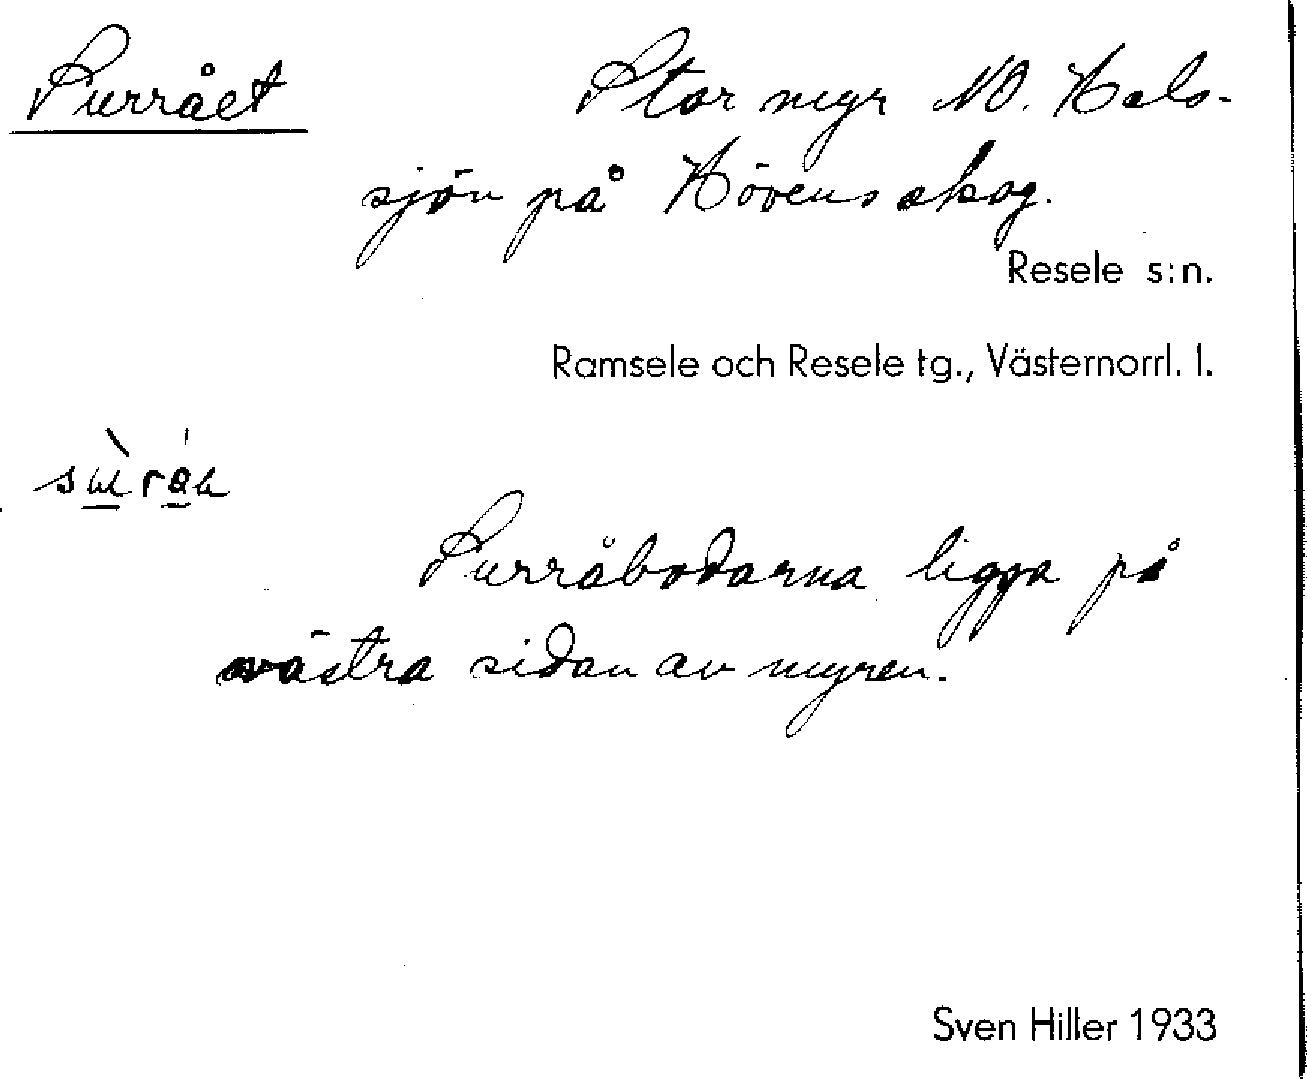 Surrået Stor myr NO. Hals-
sjön på Hövens skog.
Resele s:n.
Ramsele och Resele tg., Västernorrl. l.
Surråbodarna ligga på
västra sidan av myren.
Sven Hiller 1933